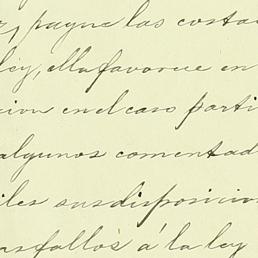 , pague las costas
ley, ella favorece en
cion en el caso parti
algunos comentad
iles sus disposicion
as fallos á la ley